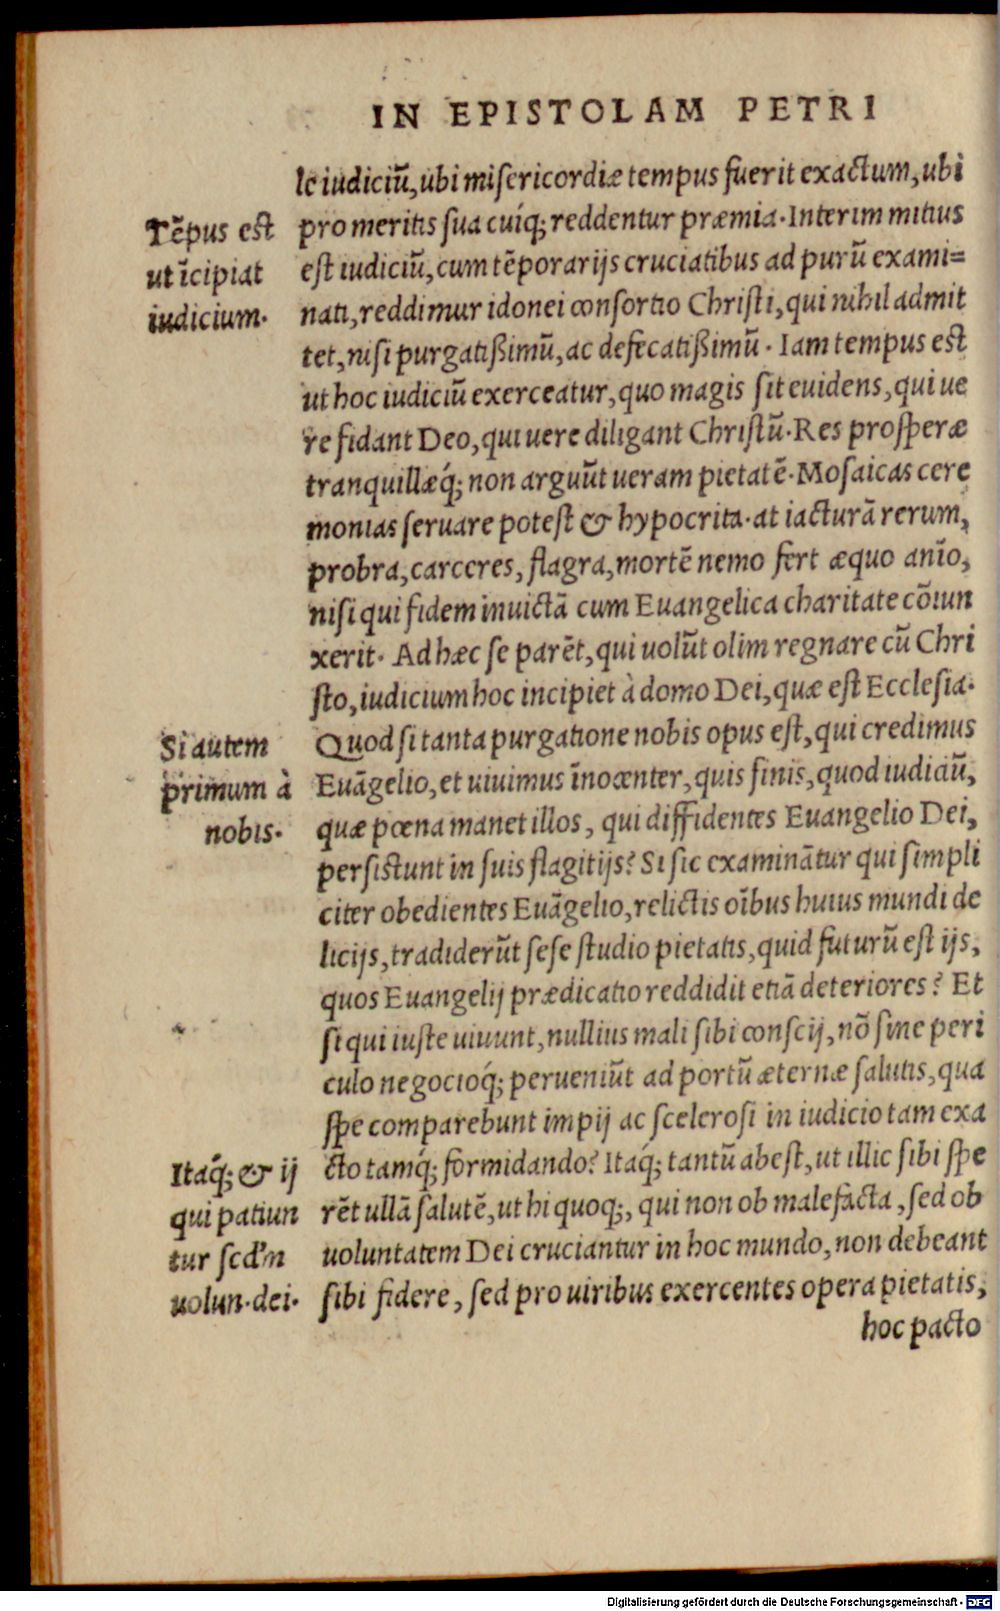 IN EPISTOLAM PETRI
le iudiciũ, ubi misericordiæ tempus fuerit exactum, ubi
pro meritis sua cuíq; reddentur præmia. Interim mitius
est iudiciũ, cum tẽporarijs cruciatibus ad purũ exami=
nati, reddimur idonei consortio Christi, qui nihil admit
tet, nisi purgatißimũ, ac defecatißimũ. Iam tempus est
ut hoc iudiciũ exerceatur, quo magis sit euidens, qui ue
re fidant Deo, qui uere diligant Christũ. Res prosperæ
tranquillæq́; non arguũt ueram pietatẽ. Mosaicas cere
monias seruare potest & hypocrita. at iacturã rerum,
probra, carceres, flagra, mortẽ nemo fert æquo anĩo,
nisi qui fidem inuictã cum Euangelica charitate cõiun
xerit. Ad hæc se parẽt, qui uolũt olim regnare cũ Chri
sto, iudicium hoc incipiet à domo Dei, quæ est Ecclesia.
Quod si tanta purgatione nobis opus est, qui credimus
Euãgelio, et uiuimus ĩnocenter, quis finis, quod iudiciũ,
quæ pœna manet illos, qui diffidentes Euangelio Dei,
persistunt in suis flagitijs? Si sic examinãtur qui simpli
citer obedientes Euãgelio, relictis oĩbus huius mundi de
licijs, tradiderũt sese studio pietatis, quid futurũ est ijs,
quos Euangelij prædicatio reddidit etiã deteriores? Et
si qui iuste uiuunt, nullius mali sibi conscij, nõ sine peri
culo negocioq́; perueniũt ad portũ æternæ salutis, qua
spe comparebunt impij ac scelerosi in iudicio tam exa
cto tamq́; formidando? Itaq; tantũ abest, ut illic sibi spe
rẽt ullã salutẽ, ut hi quoq;, qui non ob malefacta, sed ob
uoluntatem Dei cruciantur in hoc mundo, non debeant
sibi fidere, sed pro uiribus exercentes opera pietatis,
hoc pacto
Tẽpus est
ut ĩcipiat
iudicium.
Si autem
primum à
nobis.
Itaq́; & ij
qui patiun
tur scd'm
uolun. dei.
Digitalisierung gefördert durch die Deutsche Forschungsgemeinschaft - DFG